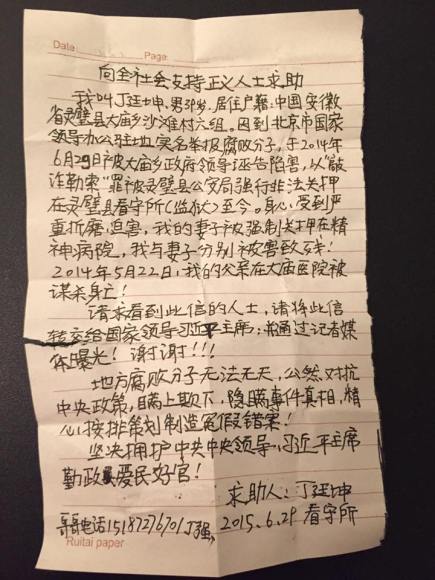 Date: Page:
向全社会支持正义人士求助
我叫丁廷坤,男38岁.居住户籍:中国安徽
省灵璧县大庙乡沙滩村六组。因到北京市国家
领导办公驻地,实名举报腐败分子,于2014年
6月29日被大庙乡政府领导诬告陷害,以"敲
诈勒索"罪被灵璧县公安局强行非法关押
在灵璧县看守所(监狱)至今。身心受到严
重折磨,迫害,我的妻子被强制关押在精
神病院,我与妻子分别被害致残!
2014年5月22日,我的父亲在大庙医院被
谋杀身亡!
请求看到此信的人士,请将此信
转交给国家领导习近平主席;并通过记者媒
体曝光!谢谢!!!
地方腐败分子无法无天,公然对抗
中央政策,瞒上欺下,隐瞒事件真相,精
心按排策划制造冤假错案!
坚决拥护中共中央领导习近平主席
勤政爱民好官!
求助人:丁廷坤
哥哥电话15187276701丁强, 2015.6.29 看守所
Ruitai paper